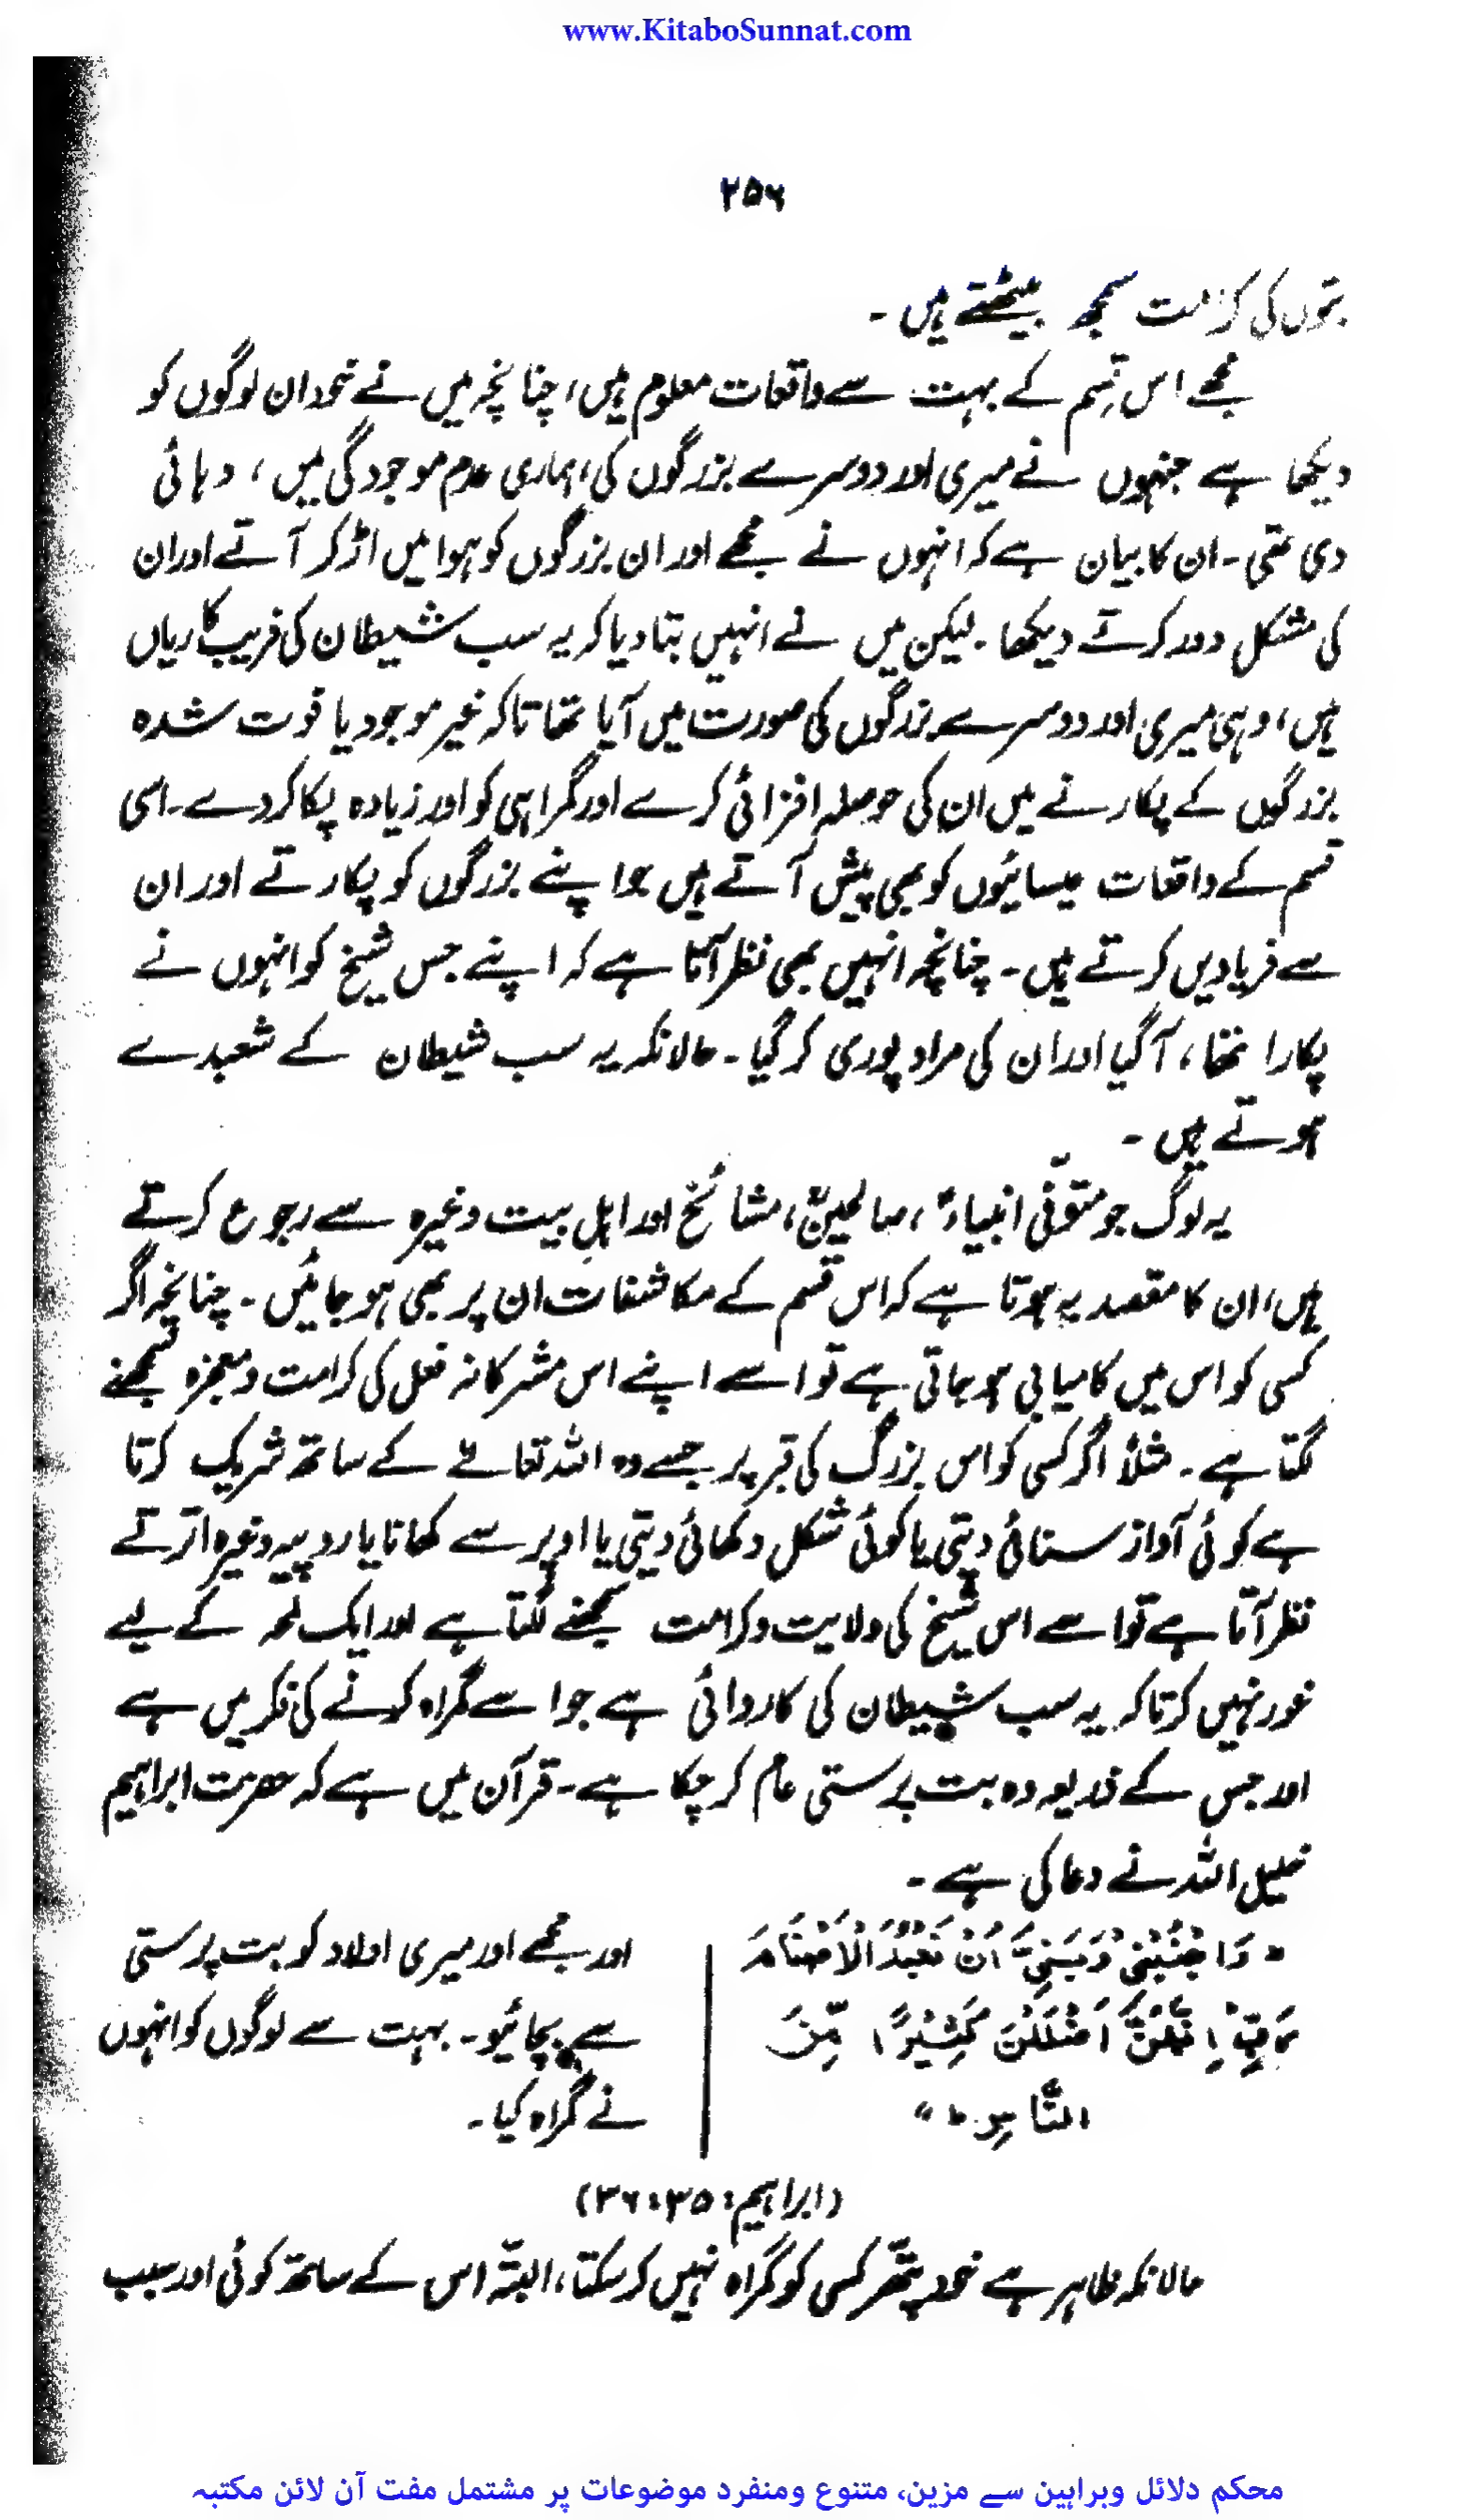 www.KitaboSunnat.com
۲۵۶
بتوں کی کرامت سمجھ بیٹھتے ہیں۔
مجھے اس قسم کے بہت سے واقعات معلوم ہیں، چنانچہ میں نے خود ان لوگوں کو
دیکھا ہے جنہوں نے میری اور دوسرے بزرگوں کی، ہماری عدم موجودگی میں، دہائی
دی تھی۔ ان کا بیان ہے کہ انہوں نے مجھے اور ان بزرگوں کو ہوا میں اڑ کر آتے اور ان
کی مشکل دور کرتے دیکھا۔ لیکن میں نے انہیں بتا دیا کہ یہ سب شیطان کی فریب کاریاں
ہیں، وہی میری اور دوسرے بزرگوں کی صورت میں آیا تھا تاکہ غیر موجود یا فوت شدہ
بزرگوں کے پکارنے میں ان کی حوصلہ افزائی کرے اور گمراہی کو اور زیادہ پکا کر دے۔ اسی
قسم کے واقعات عیسائیوں کو بھی پیش آتے ہیں جو اپنے بزرگوں کو پکارتے اور ان
سے فریادیں کرتے ہیں۔ چنانچہ انہیں بھی نظر آتا ہے کہ اپنے جس شیخ کو انہوں نے
پکارا تھا، آ گیا اور ان کی مراد پوری کر گیا۔ حالانکہ یہ سب شیطان کے شعبدے
ہوتے ہیں۔
یہ لوگ جو متوفّی انبیاءؑ، صالحینؒ، مشائخ اور اہلِ بیت وغیرہ سے رجوع کرتے
ہیں، ان کا مقصد یہ ہوتا ہے کہ اس قسم کے مکاشفات ان پر بھی ہو جائیں۔ چنانچہ اگر
کسی کو اس میں کامیابی ہو جاتی ہے تو اسے اپنے اس مشرکانہ فعل کی کرامت و معجزہ سمجھنے
لگتا ہے۔ مثلاً اگر کسی کو اس بزرگ کی قبر پر جسے وہ اللہ تعالےٰ کے ساتھ شریک کرتا
ہے کوئی آواز سنائی دیتی یا کوئی شکل دکھائی دیتی یا اوپر سے کھانا یا روپیہ وغیرہ اترتے
نظر آتا ہے تو اسے اس شیخ کی ولایت و کرامت سمجھنے لگتا ہے اور ایک لمحہ کے لیے
غور نہیں کرتا کہ یہ سب شیطان کی کاروائی ہے جو اسے گمراہ کرنے کی فکر میں ہے
اور جس کے ذریعہ وہ بت پرستی عام کر چکا ہے۔ قرآن میں ہے کہ حضرت ابراہیم
خلیل اللہ نے دعا کی ہے۔
" وَاجْنُبْنِیْ وَبَنِیَّ اَنْ نَعْبُدَ الْاَصْنَامَ
رَبِّ اِنَّهُنَّ اَضْلَلْنَ کَثِیْرًا مِّنَ
النَّاسِ ط "
اور مجھے اور میری اولاد کو بت پرستی
سے بچائیو۔ بہت سے لوگوں کو انہوں
نے گمراہ کیا۔
(ابراہیم: ۳۵، ۳۶)
حالانکہ ظاہر ہے خود پتھر کسی کو گمراہ نہیں کر سکتا، البتّہ اس کے ساتھ کوئی اور سبب
محکم دلائل وبراہین سے مزین، متنوع ومنفرد موضوعات پر مشتمل مفت آن لائن مکتبہ